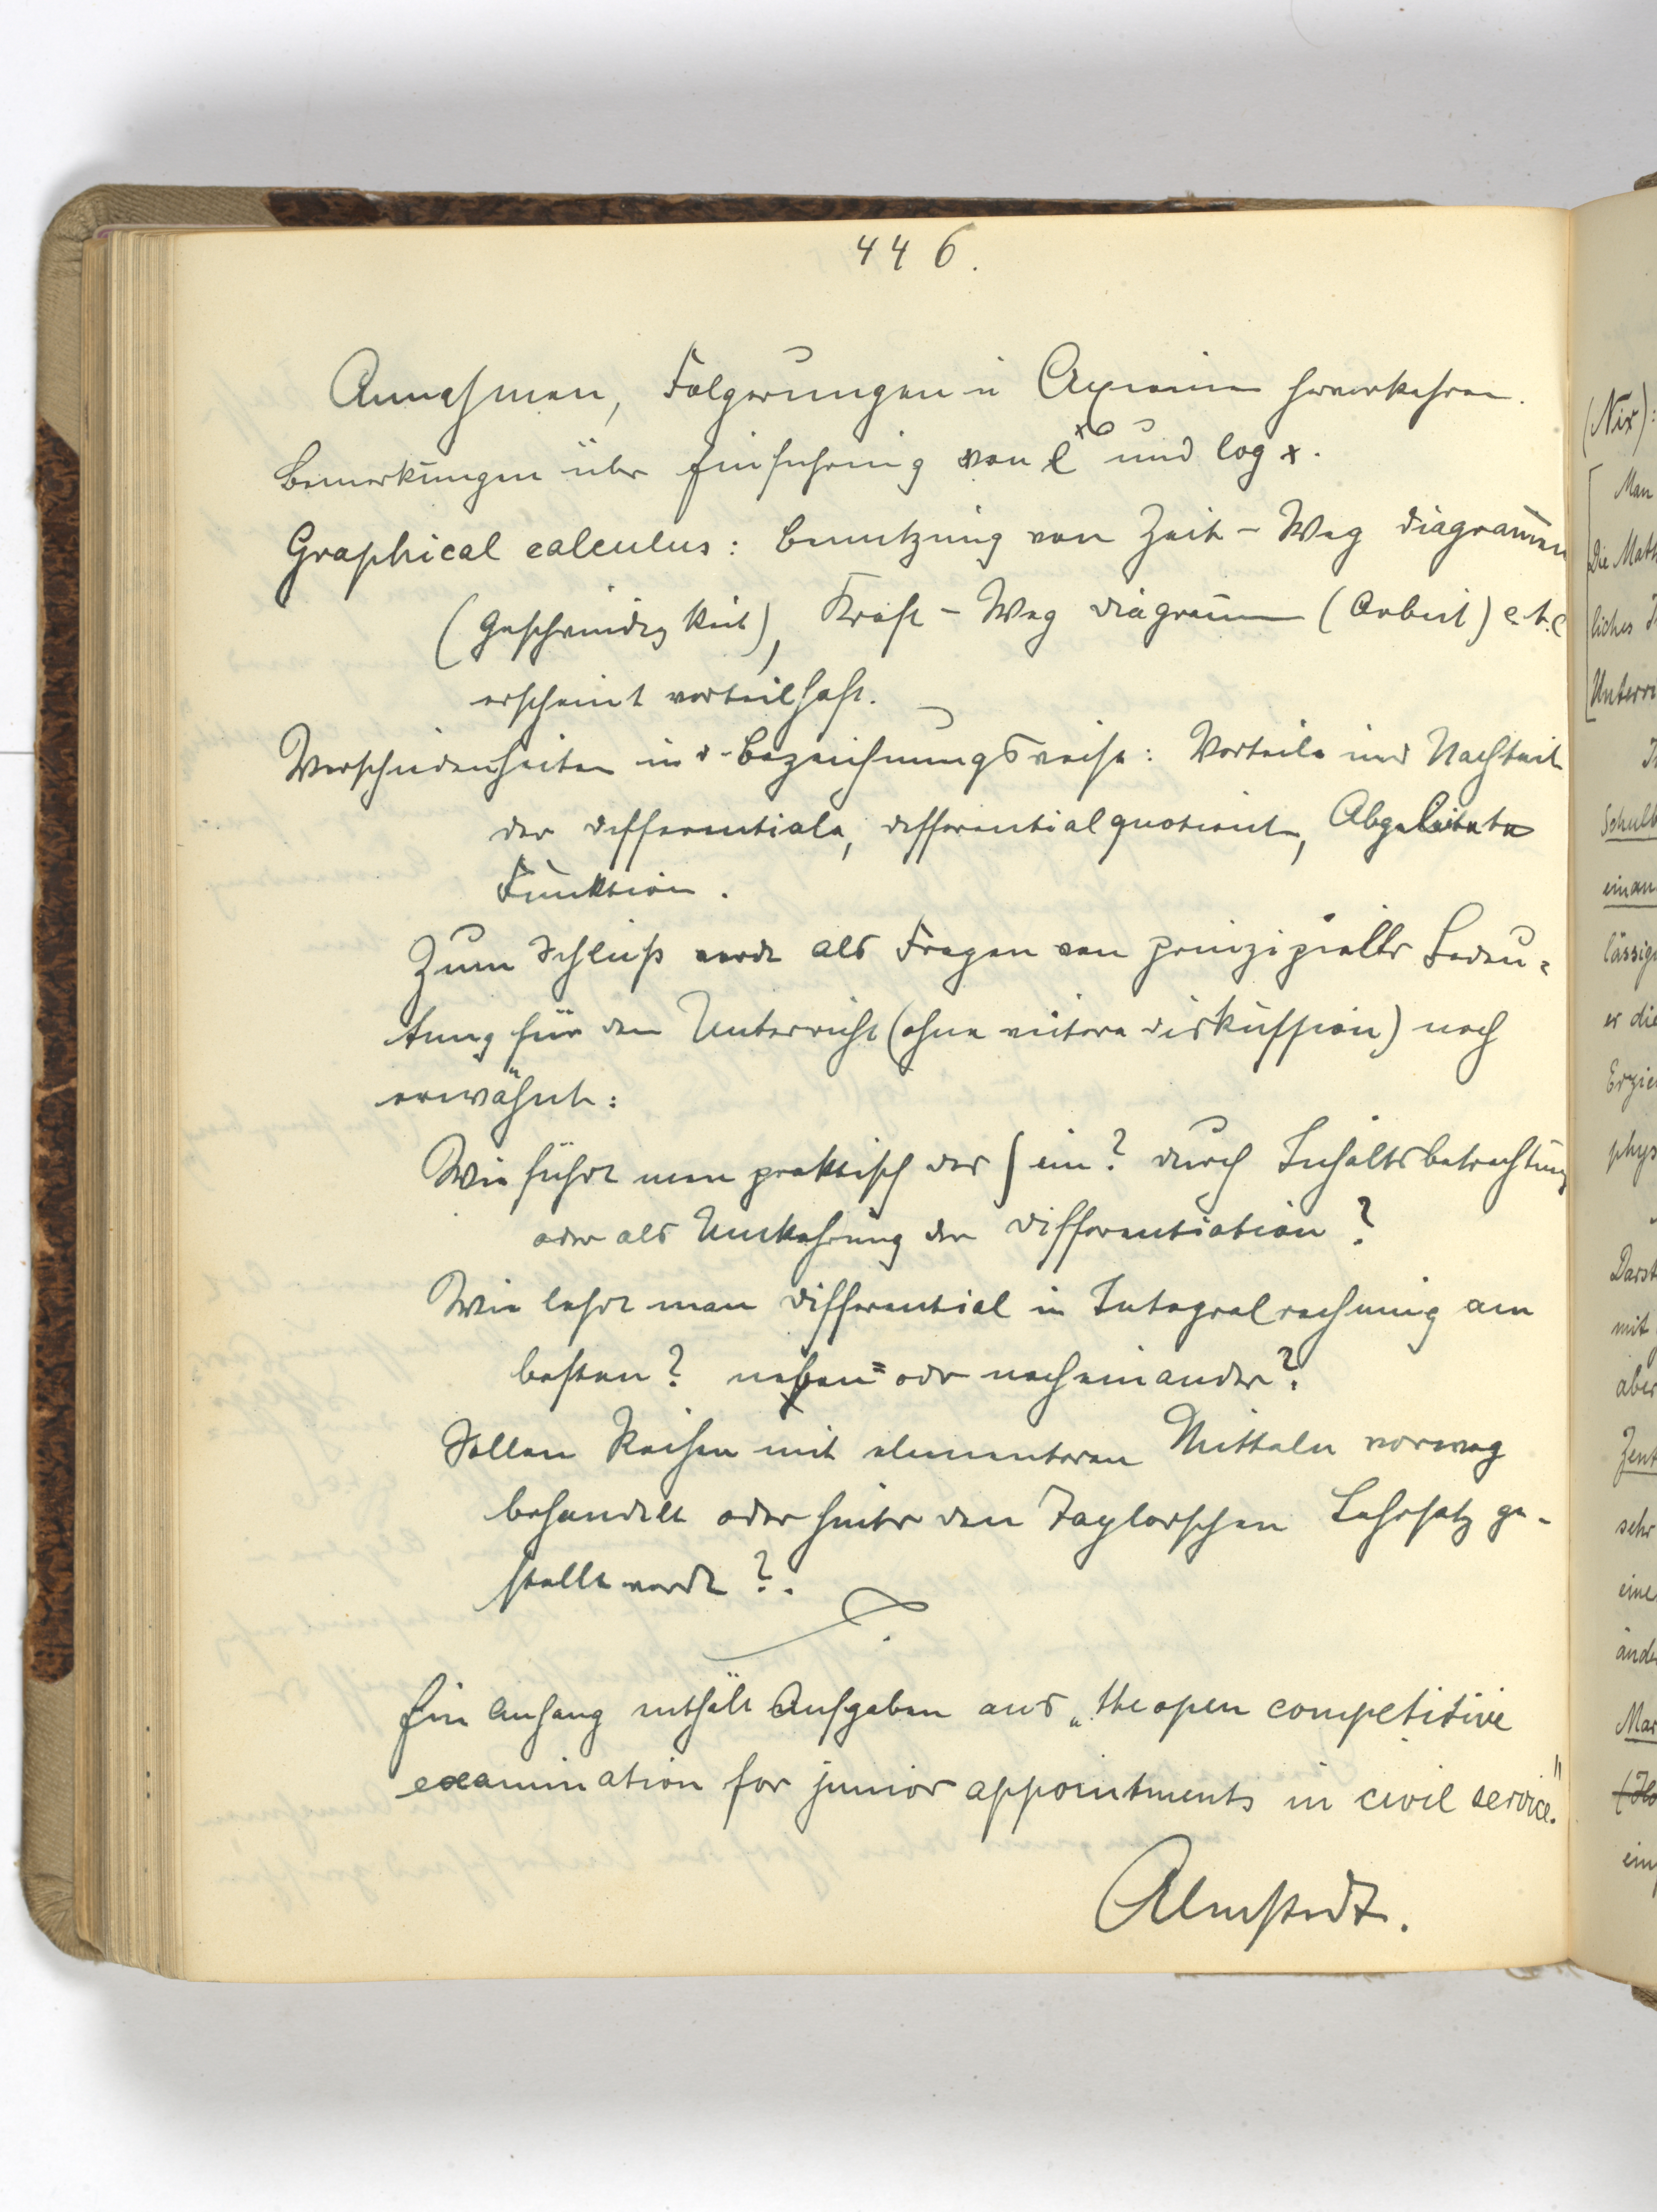 446.
Annahmen, Folgerungen u Axiome hervorkehren.
Bemerkungen über Einführung von e^x und log x.
Graphical calculus: Benutzung von Zeit - Weg diagramen
(Geschwindigkeit), Kraft - Weg diagramm (Arbeit) e.t.c
erscheint vorteilhaft.
Verschiedenheiten in d. Bezeichnungsweise: Vorteile und Nachteile
der differentiale, differentialquotient, Abgeleitete
Funktion.
Zum Schluß werde als Fragen von prinzipieller Bedeu=
tung für den Unterricht (ohne weitere diskussion) noch
erwähnt:
Wie führt man praktisch das ∫ ein? durch Inhaltsbetrachtung
oder als Umkehrung der differentiation?
Wie lehrt man differential u Integralrechnung am
besten? neben= oder nacheinander?
Sollen Reihen mit elementaren Mitteln vorweg
behandelt oder hinter den Taylorschen Lehrsatz ge-
stellt werde?.
Ein Anhang enthält Aufgaben aus „the open competitive
examination for junior appointments in civil service."
Almstedt.
(Nix):
Man
Die Math
liches
Unterri
Schulb
einan
lässig
er die
Erzie
phys
Darst
mit
aber
Zent
sehr
eine
ände
Mar
ein